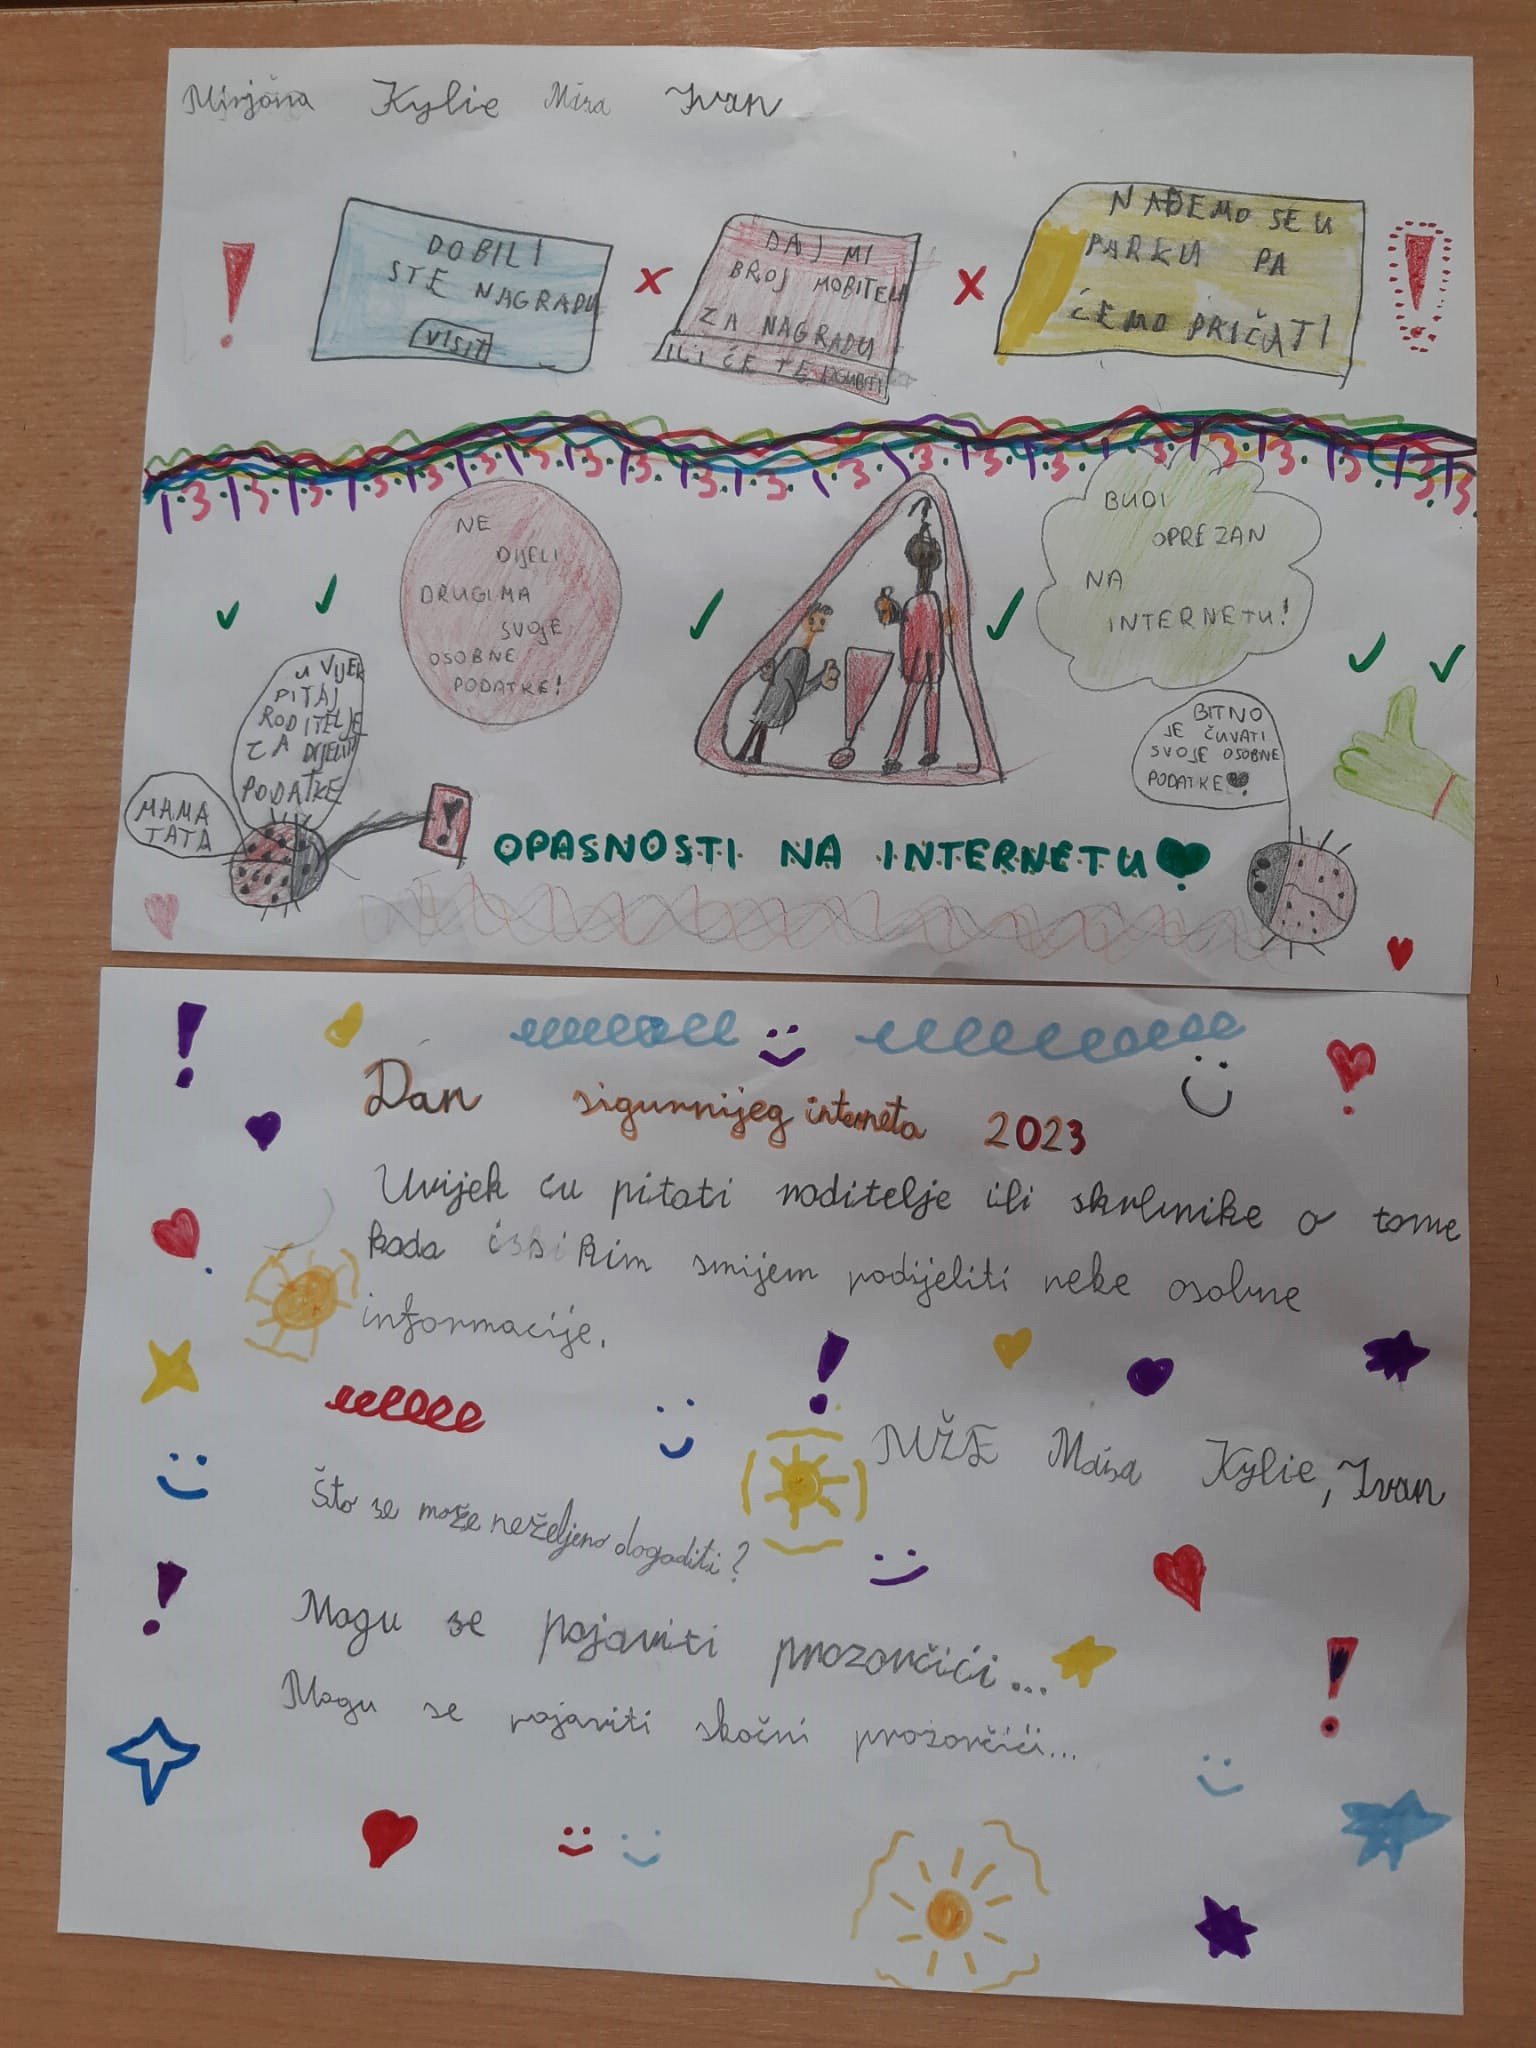 Mirjana Kylie Mára Ivan
DOBILI
STE NAGRADU
VISIT
DAJ MI
BROJ MOBITELA
ZA NAGRADU
ILI ĆE TE
NAĐEMO SE U
PARKU PA
ĆEMO PRIČATI
1.3.1.3.1.3.1.3.1.3.1.3.1.3.1.3.1.3.1.3.1.3.1.3.1.3.1.3.1.3.
NE
DIJELI
DRUGIMA
SVOJE
OSOBNE
PODATKE!
BUDI
OPREZAN
NA
INTERNETU!
UVIJEK
PITAJ
RODITELJE
ZA DIJELITI
PODATKE
MAMA
TATA
BITNO
JE ČUVATI
SVOJE OSOBNE
PODATKE
OPASNOSTI NA INTERNETU
Dan sigurnijeg interneta 2023
Uvijek ću pitati roditelje ili skrbnike o tome
kada i s kim smijem podijeliti neke osobne
informacije.
Mára Kylie, Ivan
Što se može neželjeno dogoditi?
Mogu se pojaviti prozorčići...
Mogu se pojaviti skočni prozorčići...